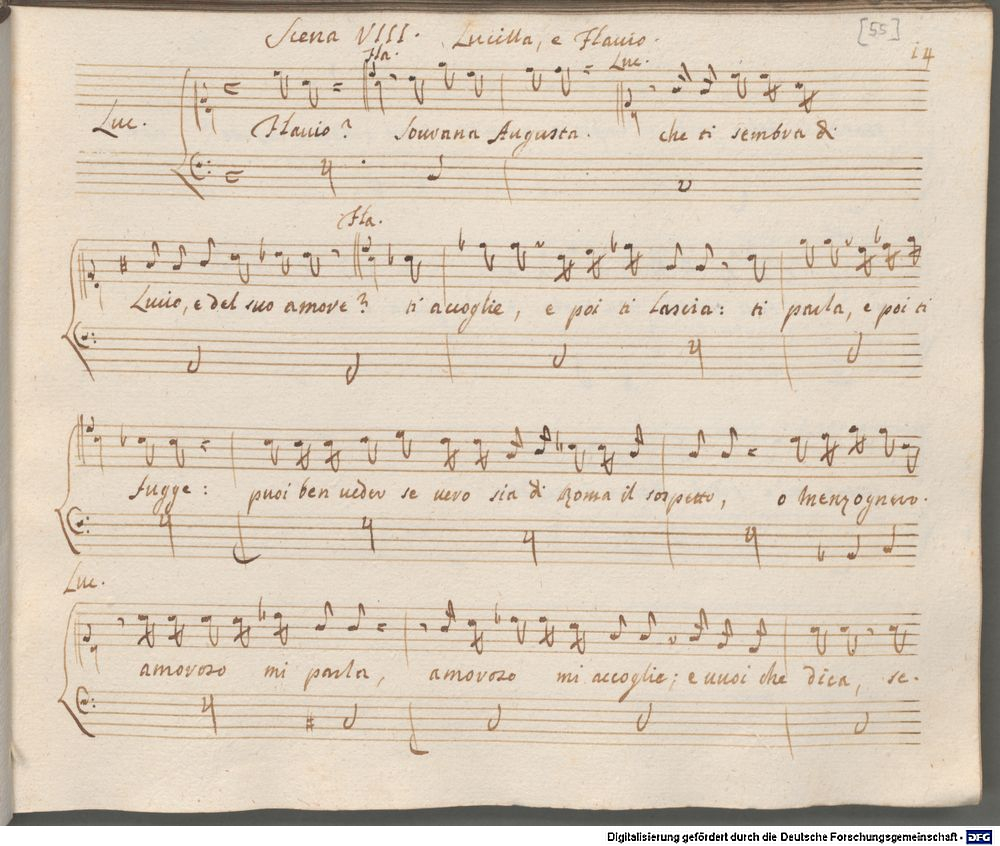 Scena VIII. Lucilla, e Flavio.
[55]
14
Fla. Luc.
Luc.
Flavio? Sovrana Augusta. che ti sembra di
Fla.
Lucio, e del suo amore? ti accoglie, e poi ti lascia: ti parla, e poi ti
fugge: puoi ben veder se vero sia di Roma il sospetto, o menzognero.
Luc.
amoroso mi parla, amoroso mi accoglie; e vuoi che dica, se.
Digitalisierung gefördert durch die Deutsche Forschungsgemeinschaft - DFG